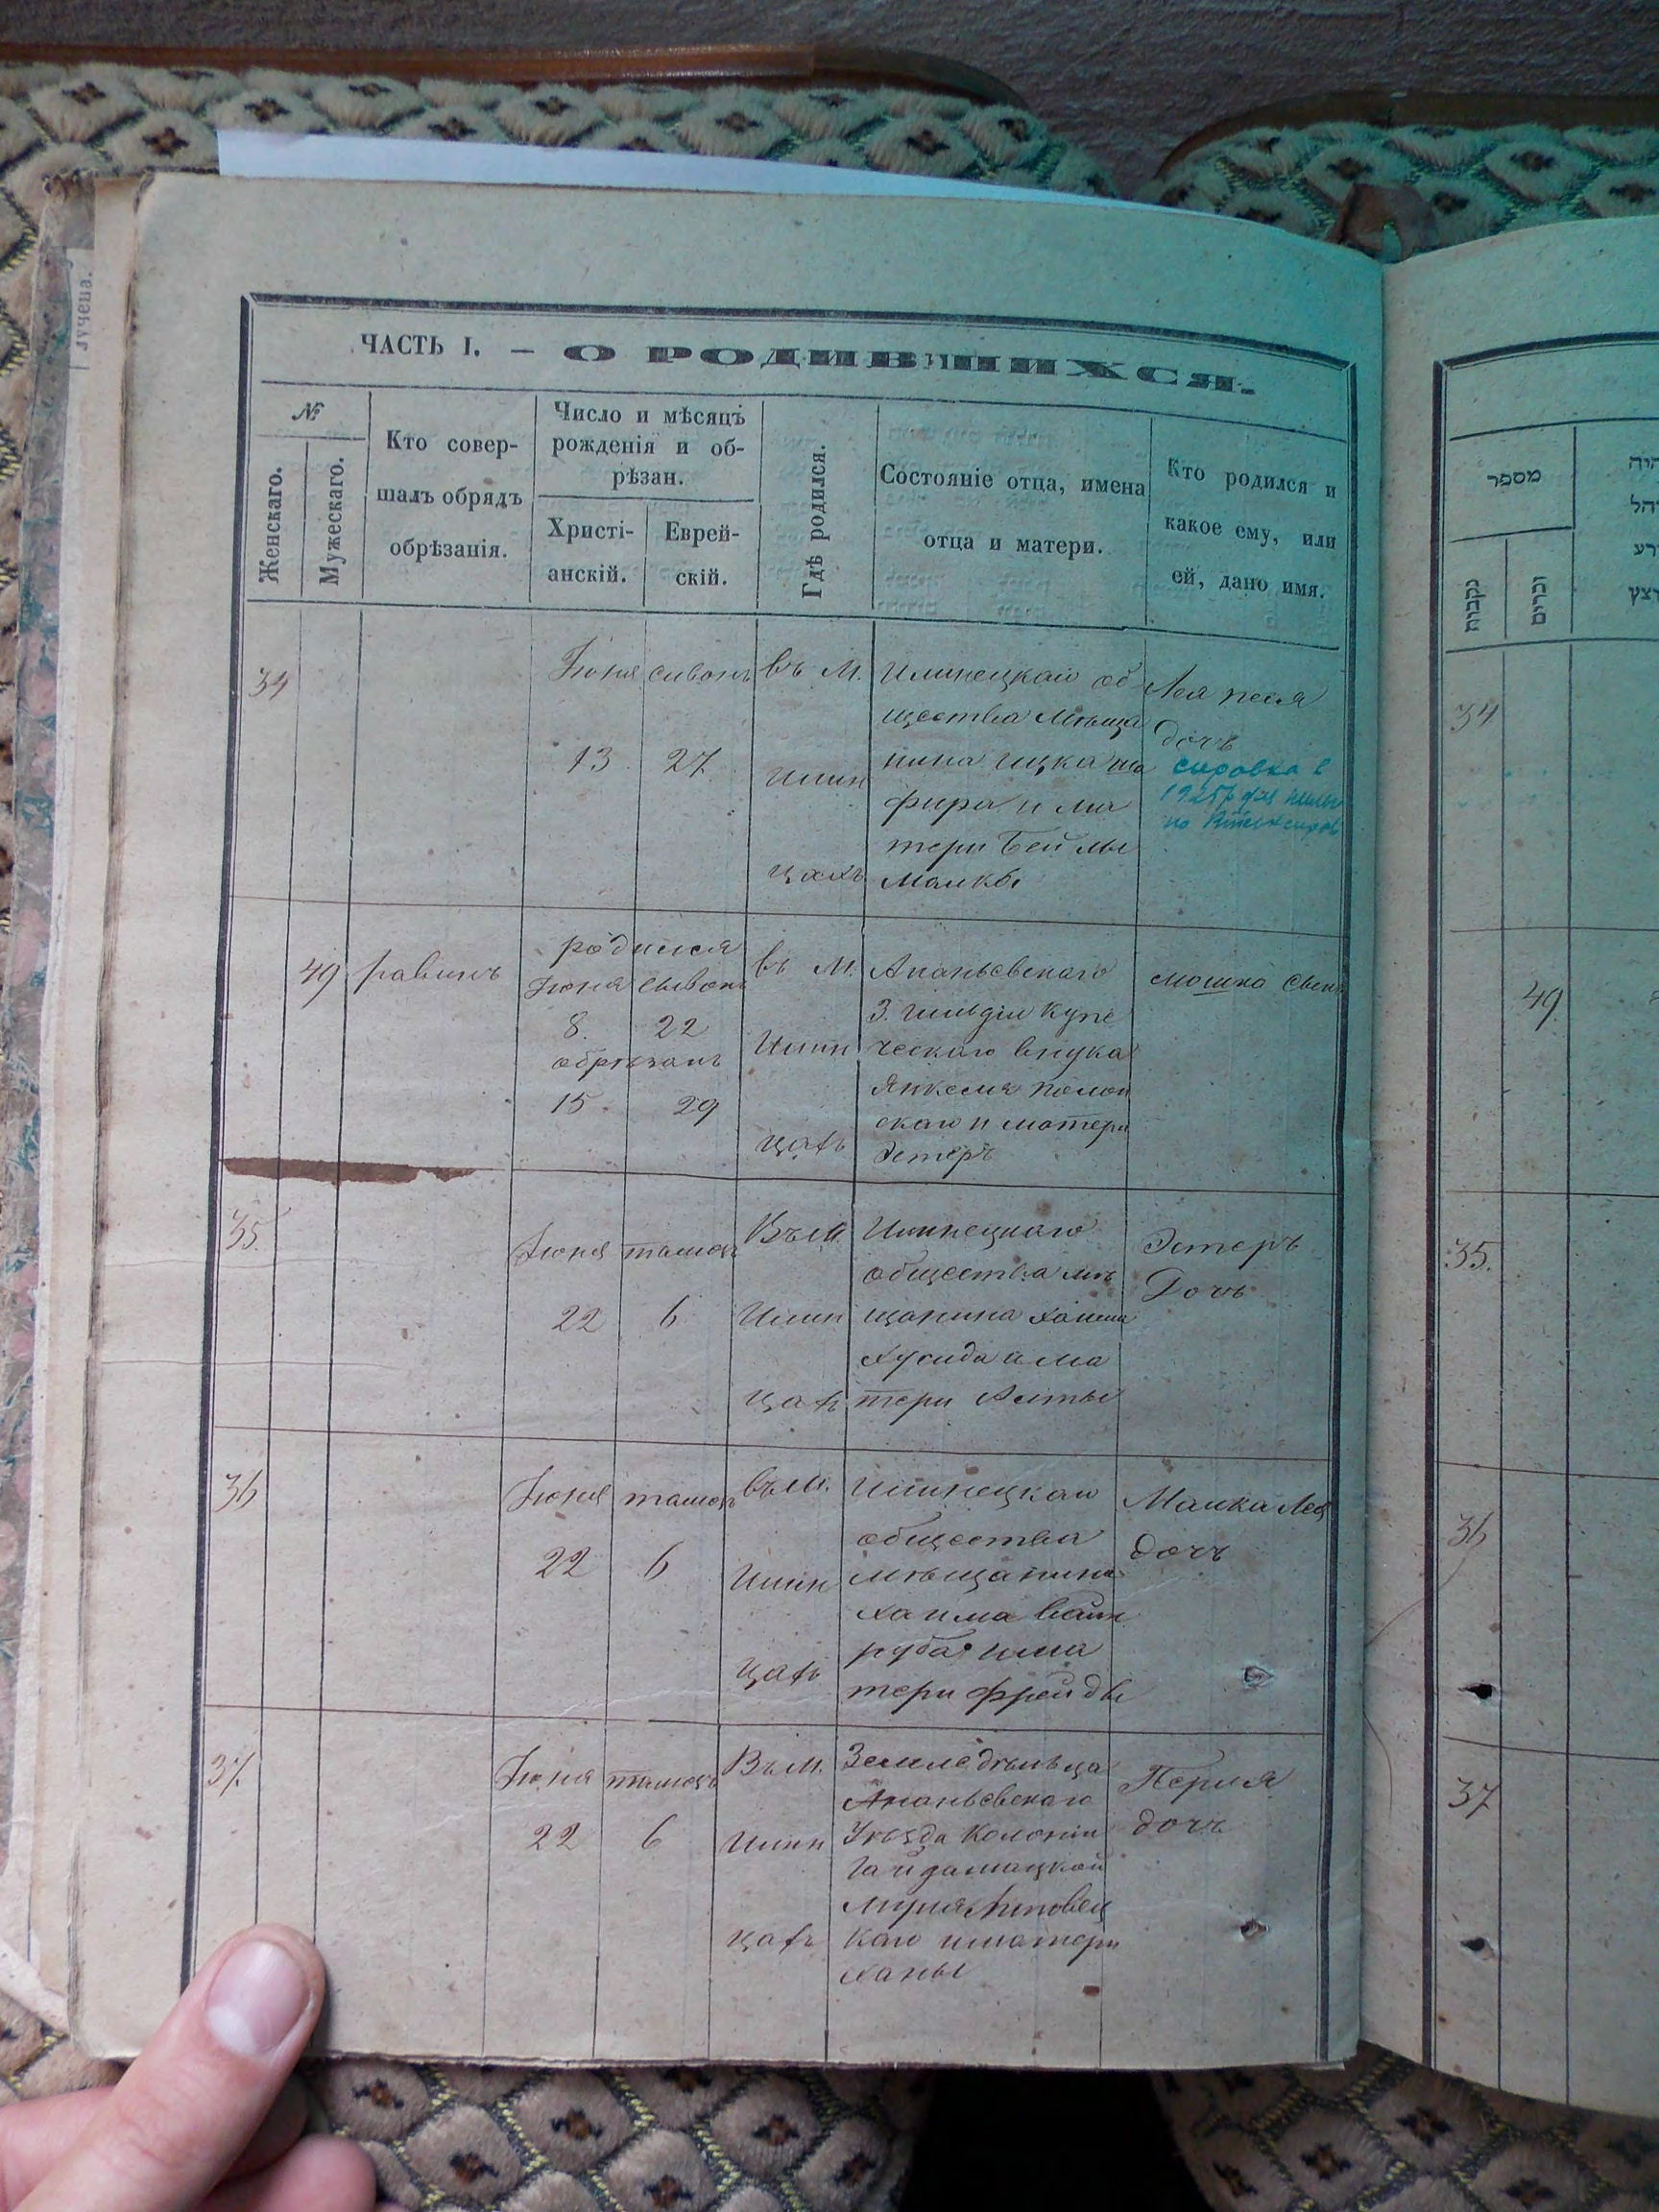 лучена.
ЧАСТЬ I. — О РОДИВШИХСЯ.
№
Женскаго.
Мужескаго.
Кто совер-
шалъ обрядъ
обрѣзанія.
Число и мѣсяцъ
рожденія и об-
рѣзан.
Христі-
анскій.
Еврей-
скій.
Гдѣ родился.
Состояніе отца, имена
отца и матери.
Кто родился и
какое ему, или
ей, дано имя.
34
Іюня
13
сивонъ
27
въ М.
Илин
цахъ
Илинецкаго об
щества мѣща
нина Ицка Ша
фира и ма
тери Бейлы
Малки
Лея песя
дочъ
49
равинъ
родился
Іюня сивонъ
8. 22
обрѣзанъ
15. 29
въ М.
Илин
цахъ
Ананьевскаго
3. гильдіи купе
ческаго внука
Янкеля полон
скаго и матери
Эстеръ
мошко
35.
Іюня
22
тамозъ
6
Въ М.
Илин
цахъ
Илинецкаго
общества мѣ
щанина
хусида и ма
тери
Эстеръ
Дочъ
36
Іюня
22
тамозъ
6
въ М.
Илин
цахъ
Илинецкаго
общества
мѣщанина
хаима вайн
руба и ма
тери фрейды
Малка Лея
дочъ
37.
Іюня
22
тамозъ
6
Въ М.
Илин
цахъ
Земледѣльца
Ананьевскаго
Уѣзда Колоніи
Гайдамацкой
Липовец
каго и матери
ханы
Перля
дочъ
מספר
נקבות
זכרים
34
49
35.
36
37